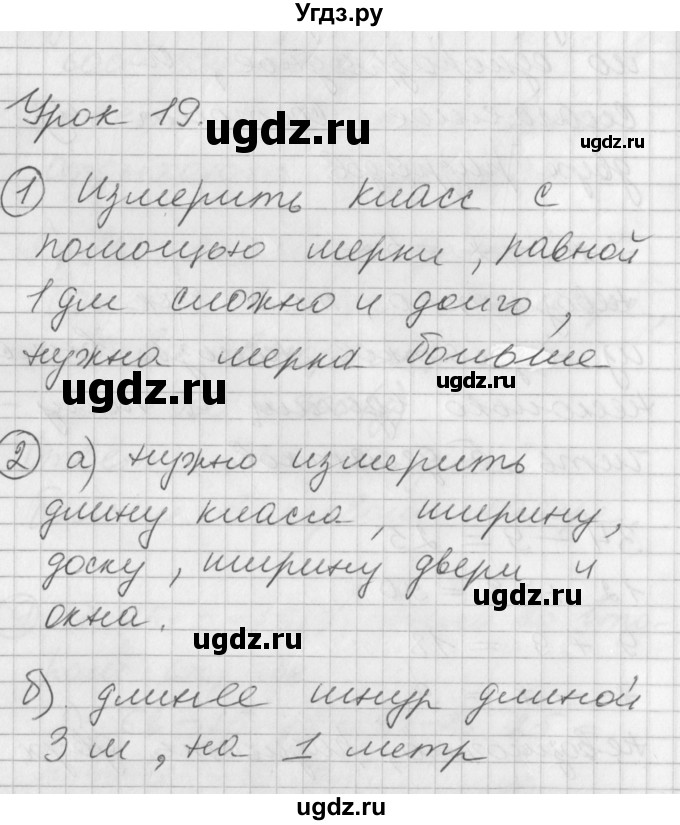 Угдз.ру
Урок 19.
ugdz.ru
ugdz.ru
1 Измерить класс с
помощью мерки, равной
1 дм сложно и долго,
нужна мерка больше
ugdz.ru
ugdz.ru
2 а) нужно измерить
длину класса, ширину,
доску, ширину двери и
ugdz.ru
окна.
ugdz.ru
б). длинее шнур длиной
3 м, на 1 метр
ugdz.ru